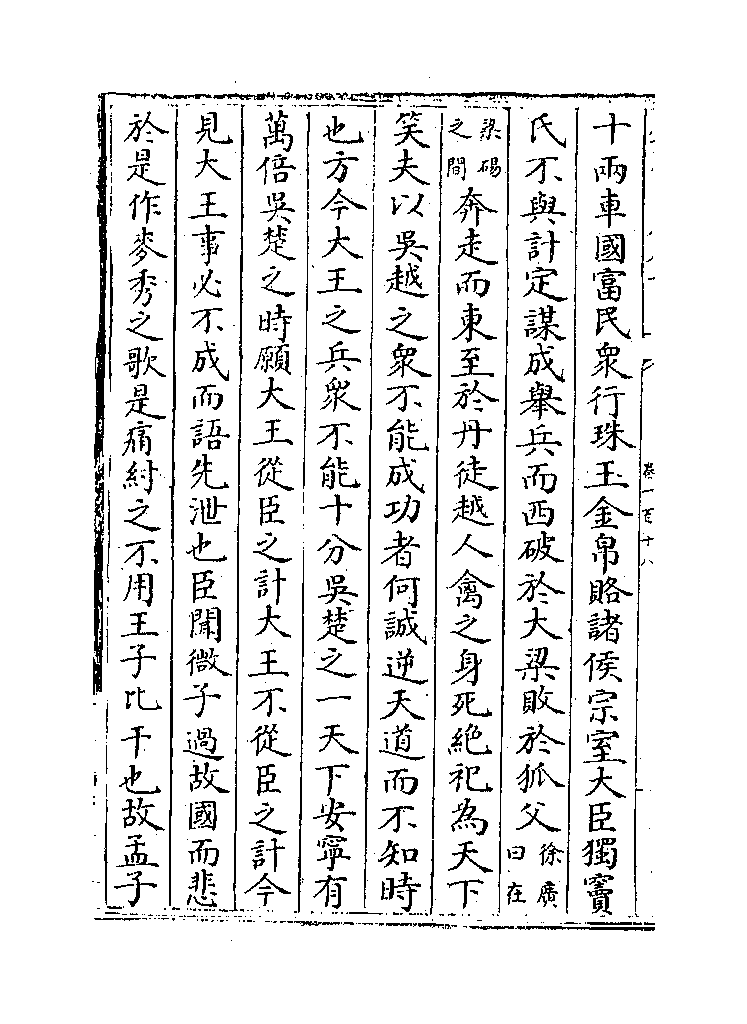 十兩車國富民衆行珠玉金帛賂諸侯宗室大臣獨竇
氏不與計定謀成舉兵而西破於大梁敗於狐父徐廣曰在
梁碭之間奔走而東至於丹徒越人禽之身死絶祀為天下
笑夫以吳越之衆不能成功者何誠逆天道而不知時
也方今大王之兵衆不能十分吳楚之一天下安寧有
萬倍吳楚之時願大王從臣之計大王不從臣之計今
見大王事必不成而語先泄也臣聞微子過故國而悲
於是作麥秀之歌是痛紂之不用王子比干也故孟子
卷一百十八